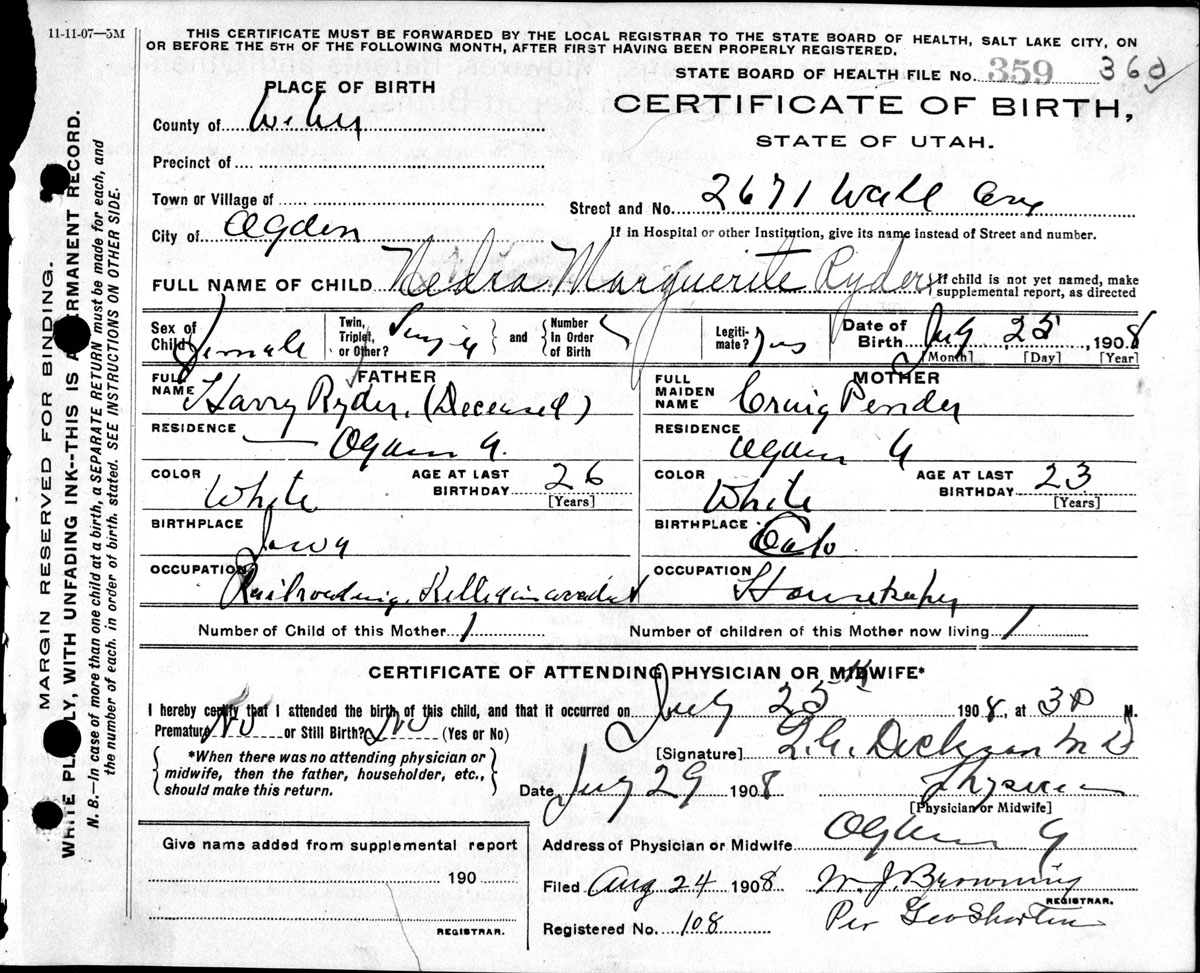 11-11-07—5M
THIS CERTIFICATE MUST BE FORWARDED BY THE LOCAL REGISTRAR TO THE STATE BOARD OF HEALTH, SALT LAKE CITY, ON
OR BEFORE THE 5TH OF THE FOLLOWING MONTH, AFTER FIRST HAVING BEEN PROPERLY REGISTERED.
STATE BOARD OF HEALTH FILE No. 359 360
PLACE OF BIRTH
CERTIFICATE OF BIRTH,
STATE OF UTAH.
County of Weber
Precinct of
Town or Village of
Street and No. 2671 Wall Ave
City of Ogden
If in Hospital or other Institution, give its name instead of Street and number.
FULL NAME OF CHILD Nedra Marguerite Ryder
If child is not yet named, make
supplemental report, as directed
Sex of Child Female
Twin, Triplet, or Other? and Number In Order of Birth
Legitimate? Yes
Date of Birth July 25, 1908
[Month] [Day] [Year]
FATHER
FULL NAME Harry Ryder. (Deceased)
RESIDENCE Ogden U.
COLOR White
AGE AT LAST BIRTHDAY 26
[Years]
BIRTHPLACE Iowa
OCCUPATION Railroading. Killed in
MOTHER
FULL MAIDEN NAME Pender
RESIDENCE Ogden U
COLOR White
AGE AT LAST BIRTHDAY 23
[Years]
BIRTHPLACE
OCCUPATION Housekeeper
Number of Child of this Mother 1
Number of children of this Mother now living 1
CERTIFICATE OF ATTENDING PHYSICIAN OR MIDWIFE*
I hereby certify that I attended the birth of this child, and that it occurred on July 25th 1908, at M.
Premature No or Still Birth? No (Yes or No)
*When there was no attending physician or
midwife, then the father, householder, etc.,
should make this return.
[Signature] Dickson M D
Date July 29 1908 Physician
[Physician or Midwife]
Address of Physician or Midwife Ogden U
Filed Aug 24 1908 W. J. Browning
REGISTRAR.
Registered No. 108 Per Geo Shorten
Give name added from supplemental report
190
REGISTRAR.
MARGIN RESERVED FOR BINDING.
WRITE PLAINLY, WITH UNFADING INK--THIS IS A PERMANENT RECORD.
N. B.—In case of more than one child at a birth, a SEPARATE RETURN must be made for each, and
the number of each, in order of birth, stated. SEE INSTRUCTIONS ON OTHER SIDE.